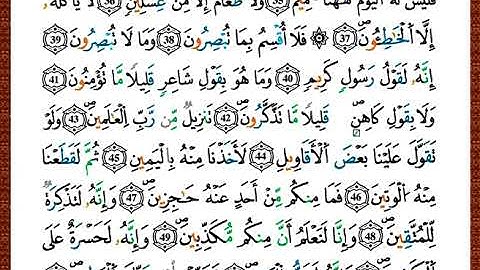 فَلَيْسَ لَهُ الْيَوْمَ هَٰهُنَا حَمِيمٌ ﴿35﴾ وَلَا طَعَامٌ إِلَّا مِنْ غِسْلِينٍ ﴿36﴾ لَا يَأْكُلُهُ
إِلَّا الْخَاطِـُٔونَ ﴿37﴾ ۞ فَلَا أُقْسِمُ بِمَا تُبْصِرُونَ ﴿38﴾ وَمَا لَا تُبْصِرُونَ ﴿39﴾
إِنَّهُ لَقَوْلُ رَسُولٍ كَرِيمٍ ﴿40﴾ وَمَا هُوَ بِقَوْلِ شَاعِرٍ قَلِيلًا مَّا تُؤْمِنُونَ ﴿41﴾
وَلَا بِقَوْلِ كَاهِنٍ قَلِيلًا مَّا تَذَكَّرُونَ ﴿42﴾ تَنزِيلٌ مِّن رَّبِّ الْعَالَمِينَ ﴿43﴾ وَلَوْ
تَقَوَّلَ عَلَيْنَا بَعْضَ الْأَقَاوِيلِ ﴿44﴾ لَأَخَذْنَا مِنْهُ بِالْيَمِينِ ﴿45﴾ ثُمَّ لَقَطَعْنَا
مِنْهُ الْوَتِينَ ﴿46﴾ فَمَا مِنكُم مِّنْ أَحَدٍ عَنْهُ حَاجِزِينَ ﴿47﴾ وَإِنَّهُ لَتَذْكِرَةٌ
لِّلْمُتَّقِينَ ﴿48﴾ وَإِنَّا لَنَعْلَمُ أَنَّ مِنكُم مُّكَذِّبِينَ ﴿49﴾ وَإِنَّهُ لَحَسْرَةٌ عَلَى